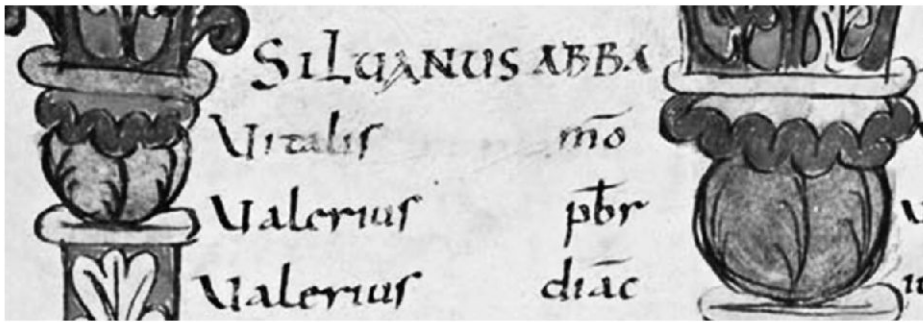 SILUANUS ABBA
Vitalis mō
Valerius pb̄r
Valerius diāc